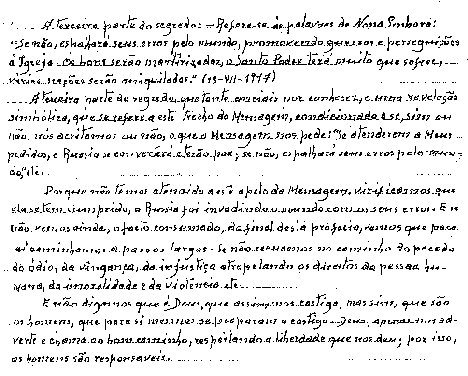 A terceira parte do segredo: – Refere-se às palavras de Nossa Senhora:
"Se não, espalhará seus erros pelo mundo, promovendo guerras e perseguições
à Igreja. Os bons serão martirizados, o Santo Padre terá muito que sofrer,
várias nações serão aniquiladas." (13-VII-1917)
A terceira parte do segredo, que tanto ansiais por conhecer, é uma revelação
simbólica, que se refere a este trecho da Mensagem, condicionada a se, sim ou
não, nós aceitamos ou não, o que a Mensagem nos pede: "Se atenderem a Meus
pedidos, a Russia se converterá e terão paz; se não, espalhará seus erros pelo mun-
do", etc.
Porque não temos atendido a este apelo da Mensagem, verificamos que
ela se tem cumprido, a Russia foi invadindo o mundo com os seus erros. E se
não vemos ainda, o facto consumado, do final desta profecia, vemos que para
aí caminhamos a passos largos. Se não recuarmos no caminho do pecado,
do ódio, da vingança, da injustiça atropelando os direitos da pessoa hu-
mana, da imoralidade e da violencia, etc.
E não digamos que é Deus, que assim nos castiga, mas sim, que são
os homens, que para si mesmos se preparam o castigo. Deus, apenas nos ad-
verte e chama ao bom caminho, respeitando a liberdade que nos deu; por isso,
os homens são responsaveis.